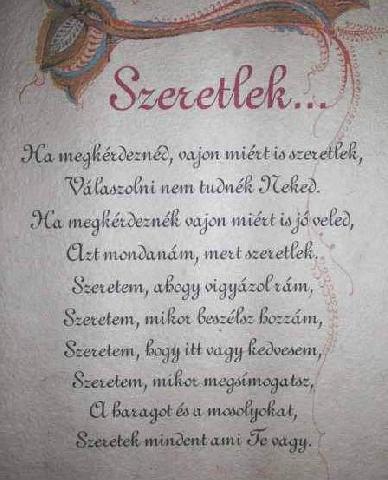 Szeretlek...
Ha megkérdeznéd, vajon miért is szeretlek,
Válaszolni nem tudnék Neked.
Ha megkérdeznék vajon miért is jó veled,
Azt mondanám, mert szeretlek.
Szeretem, ahogy vigyázol rám,
Szeretem, mikor beszélsz hozzám,
Szeretem, hogy itt vagy kedvesem,
Szeretem, mikor megsímogatsz,
A haragot és a mosolyokat,
Szeretek mindent ami Te vagy.